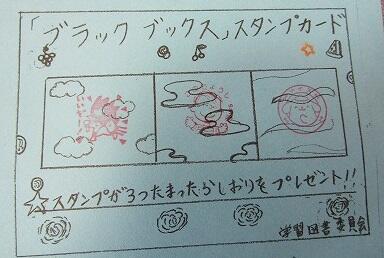 「ブラック ブックス」スタンプカード
スタンプが3つたまったらしおりをプレゼント!!
学習図書委員会